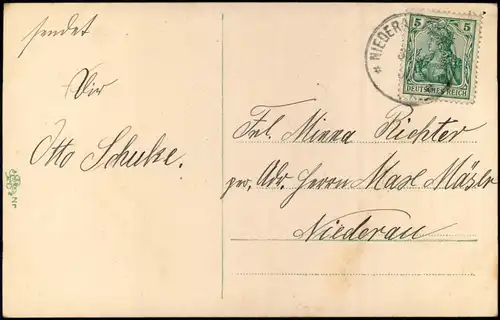 sendet
Dir
Otto Schulze.
NIEDERA
5 5
DEUTSCHES REICH
Frl. Minna Richter
per. Adr. Herrn
Niederau